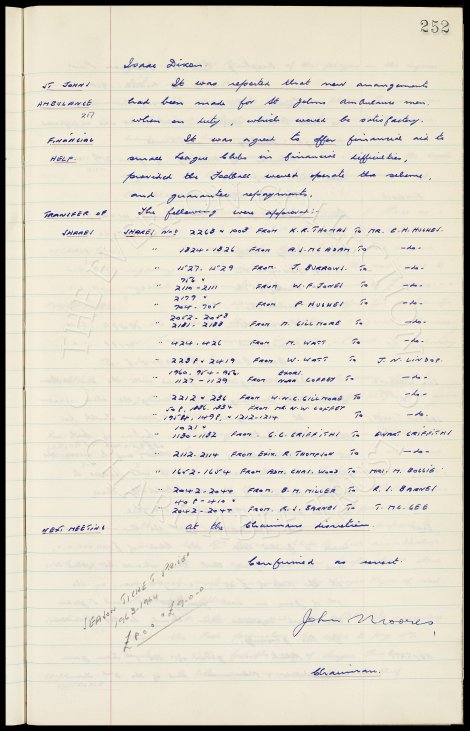 252
Isaac Dixon.
ST JOHNS AMBULANCE 217 It was reported that new arrangements
had been made for St Johns Ambulance men
when on duty, which would be satisfactory.
FINANCIAL HELP. It was agreed to offer financial aid to
small League Clubs in financial difficulties,
provided the Football would operate the scheme,
and guarantee repayments.
TRANSFER OF SHARES The following were approved:-
SHARES Nos 2268 & 1008 FROM K.R. THOMAS TO MR. E.H. HUGHES.
" 1824-1826 FROM A.S. MCADAM TO -do-
" 1527-1529 FROM J. BURROWS TO -do-
" 2110-2111 FROM W.F. JONES TO -do-
2179 &
" 704-705 FROM P. HUGHES TO -do-
2052-2053
" 2181-2188 FROM M. GILLMORE TO -do-
" 424-426 FROM M. WATT TO -do-
" 2238 & 2419 FROM W. WATT TO J.N. LINDOP.
" 1127-1129 FROM EXORS. TO -do-
" 2212 & 236 FROM W.N.G. GILLMORE TO -do-
" 1498, & 1212-1214 FROM MR N.W. COFFEY TO -do-
1021 &
" 1130-1132 FROM G.G. GRIFFITHS TO EWART GRIFFITHS
" 2112-2114 FROM EXOR. R. THOMPSON TO -do-
" 1652-1654 FROM ADM. CHAS. WOOD TO MRS. M. BOGGIE
" FROM B.M. MILLER TO R.S. BARNES
409-410 &
" FROM R.S. BARNES TO T. MCGEE
NEXT MEETING at the Chairmans discretion.
Confirmed as correct.
SEASON TICKET PRICES
1963-1964
£8.0.0 & £9.0.0
John Moores,
Chairman.